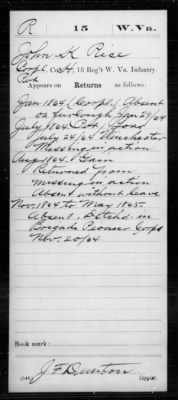 R 15 W. Va.
John K Rise
Corpl., Co. H, 15 Reg't W. Va. Infantry.
Pvt
Appears on Returns as follows:
Jan 1864 (Corpl) Absent
on furlough Jan 29/64
July 1864 Pvt. Loss
July 24/64 Winchester
Missing in action
Aug 1864. Gain
Returned from
missing in action
Absent without leave
Nov. 1864 to May 1865.
Absent. Detchd. in
Brigade Pioneer Corps
Nov. 20/64
Book mark:
J F Dunton
Copyist.